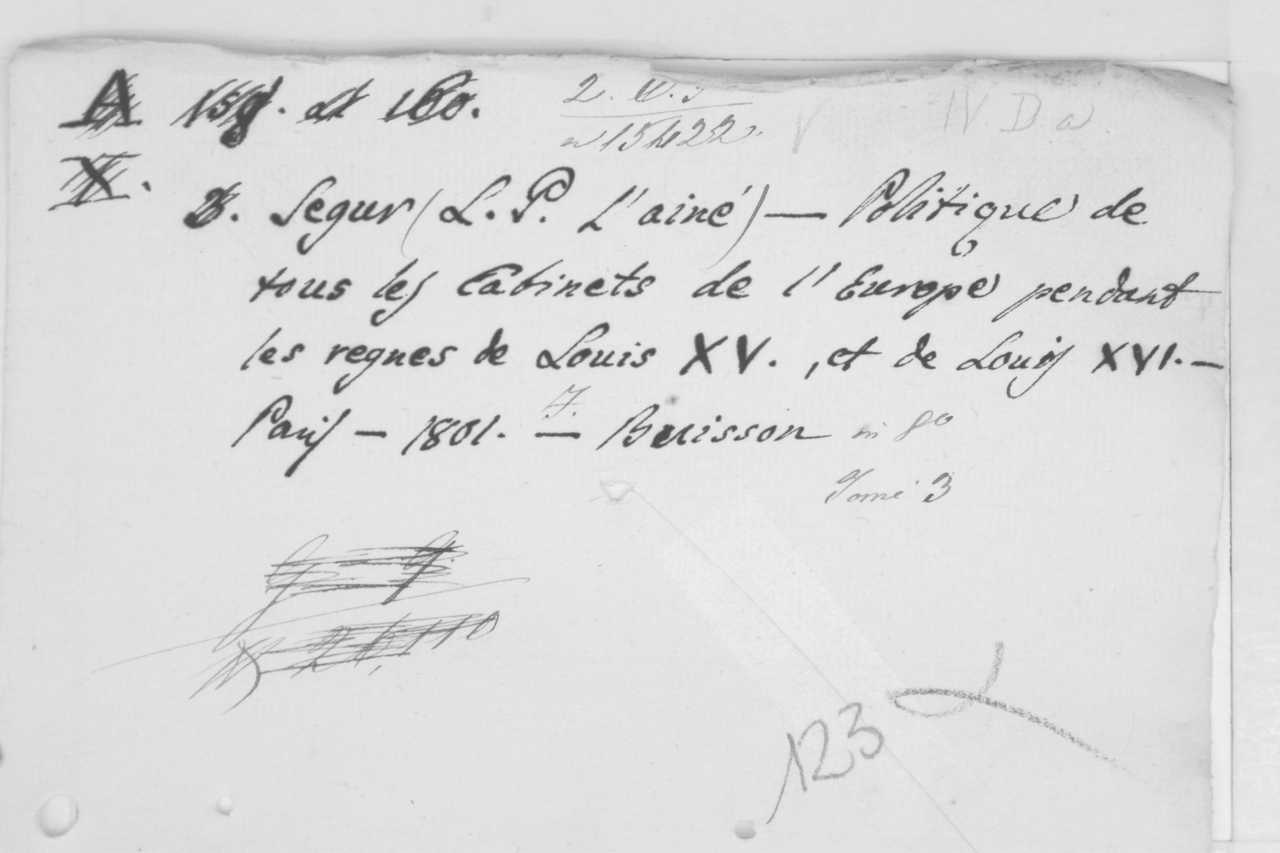 A 159. et 160. 2. W. 5 IV. D a
15422 V
X.
B. Segur (L. P. L'ainé) — Politique de
tous les Cabinets de l'Europe pendant
les regnes de Louis XV., et de Louis XVI. —
Paris — 1801. — Buisson in 8º
Tome 3
123